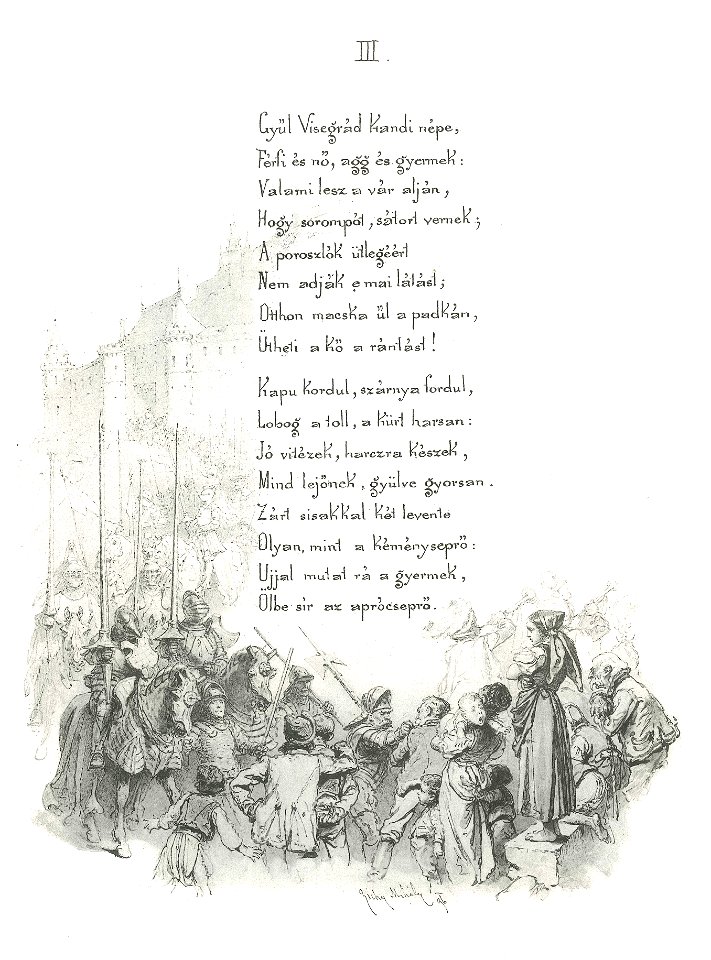 III.
Gyül Visegrád kandi népe,
Férfi és nő, agg és gyermek:
Valami lesz a vár alján,
Hogy sorompót, sátort vernek;
A poroszlók ütlegéért
Nem adják e mai látást;
Otthon macska ül a padkán,
Ütheti a kő a rántást!
Kapu kordul, szárnya fordul,
Lobog a toll, a kürt harsan:
Jó vitézek, harczra készek,
Mind lejőnek, gyülve gyorsan.
Zárt sisakkal két levente
Olyan, mint a kéményseprő:
Ujjal mutat rá a gyermek,
Ölbe sir az aprócseprő.
Zichy Mihály